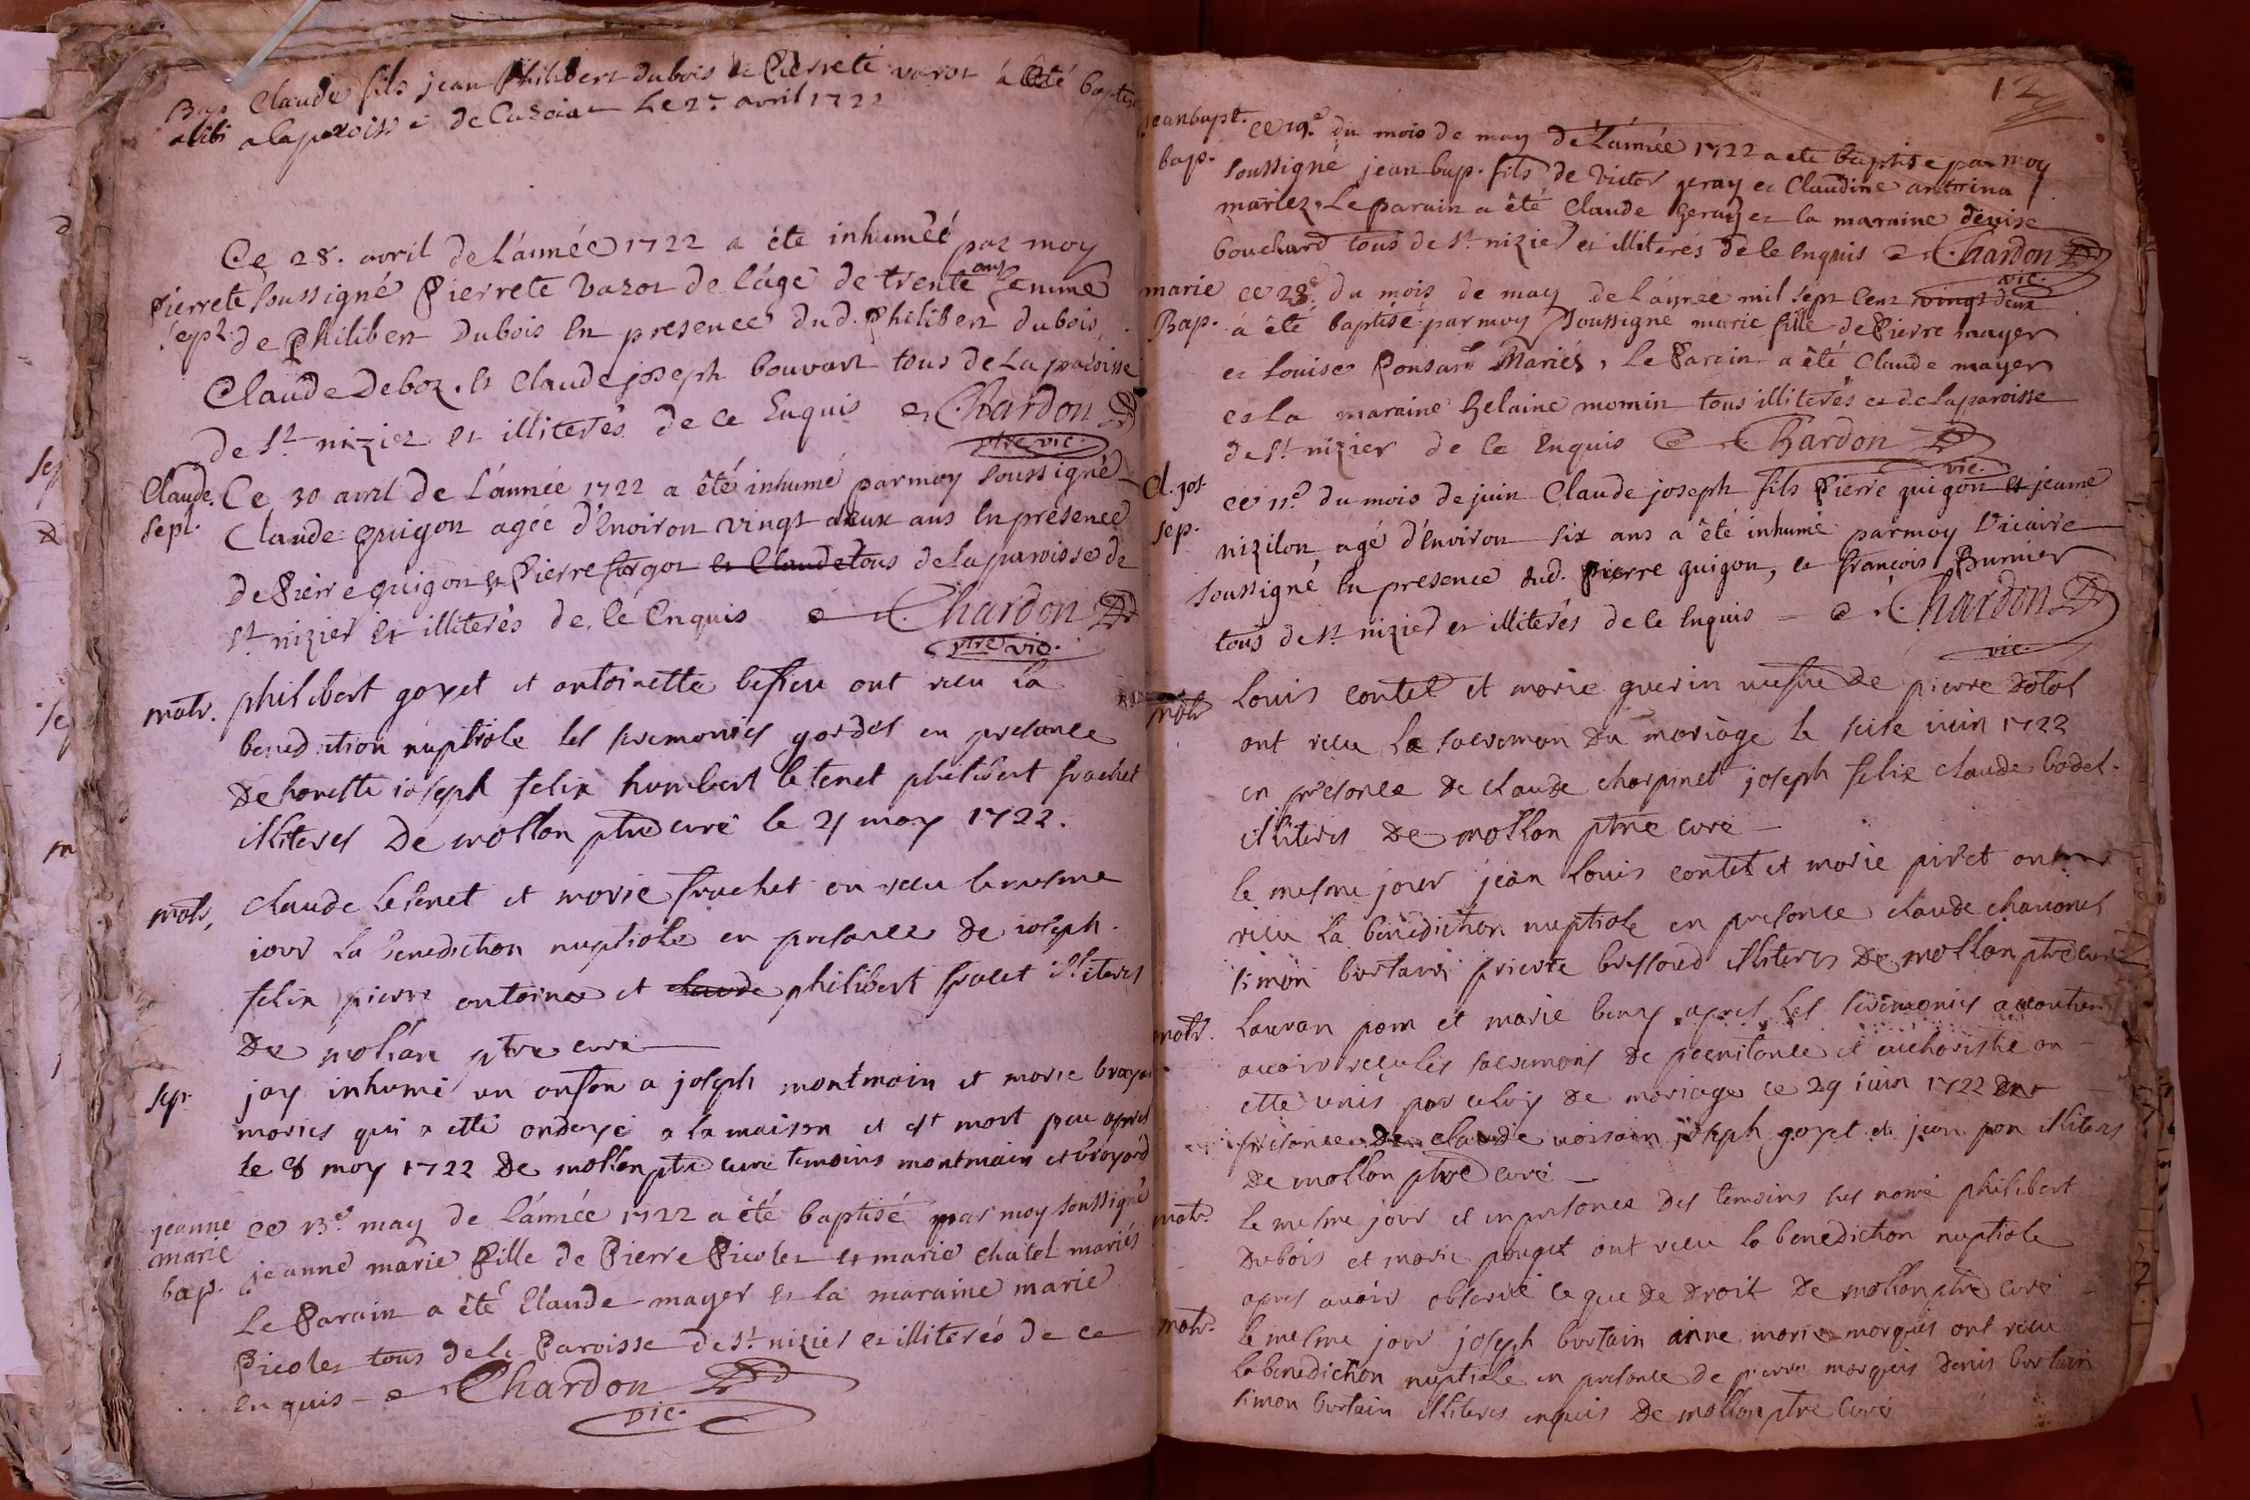 Bap. Claude fils jean Philibert Dubois et Pierrete varot à été baptisé
alibi a la paroisse de le 27 avril 1722
Ce 28. avril de l'année 1722 a éte inhumée par moy
Pierrete soussigné Pierrete Varot de l'áge de trente ans femme
sept. de Philibert Dubois En presence dud. Philibert dubois
Claude Deboz. et Claude joseph bouvart tous de La paroisse
de St nizier et illiterés de ce Enquis Chardon
ptre vic.
Claude. Ce 30 avril de L'année 1722 a été inhumé par moy soussigné
sept. Claude guigon agée d'Environ vingt deux ans En présence
de Pierre guigon et Pierre forgot et Claude tous de la paroisse de
St nizier et illiterés de ce Enquis Chardon
ptre vic.
matr. philibert goyet et antoinette ont receu la
benediction nuptiale les seremonies gardes en presance
De honeste ioseph felix humbert le tenet philibert frachet
illiteres De mollon ptre curé le 21 may 1722.
matr. claude le tenet et marie frachet on receu le mesme
iour la benediction nuptiale en presance De ioseph
felix pierre antoine et claude philibert illiteres
De mollon ptre curé
sep. jay inhumé un anfan a joseph montmain et marie broyard
maries qui a etté ondoyé a la maison et est mort peu apres
le 8 may 1722 De mollon ptre curé temoins montmain et broyard
jeanne ce 13e may de L'année 1722 a été baptisé par moy soussigné
marie jeanne marie fille de Pierre Picolet et marie chatel mariés
bap. Le Parain a été Claude mayer et la maraine marie
Picolet tous de la Paroisse de St nizier et illiterés de ce
enquis Chardon
vic.
12
jean bapt. ce 19e du mois de may de L'année 1722 a ete baptisé par moy
bap. soussigné jean bap. fils de Victor geray et Claudine antoina
mariez. Le parain a été Claude geray et la maraine denise
bouchard tous de St nizier et illiterés de ce Enquis Chardon
vic.
marie ce 28e du mois de may de L'année mil sept cent vingt deux
Bap. á été baptisé par moy soussigné marie fille de Pierre mayer
et Louise Ponsard Mariés, Le Parain a été Claude mayer
et La maraine helaine momin tous illiterés et de la paroisse
de St nizier de ce Enquis Chardon
vic.
Cl. jos ce 11e du mois de juin Claude joseph fils Pierre guigon et jeanne
sep. nizilon agé d'Environ six ans a été inhumé par moy Vicaire
soussigné En presence dud. Pierre guigon, et françois Burnier
tous de St nizier et illiterés de ce Enquis Chardon
vic.
matr Louis contet et marie guerin de pierre
ont receu le sacreman du mariage le seise iuin 1722
en presance de claude charpinet joseph felix claude bodet
illiteres De mollon ptre curé
le mesme jour jean Louis contet et marie piret ont
receu la benediction nuptiale en presance claude chavanet
simon burtain pierre bressoud illiteres De mollon ptre curé
matr. Lauran pom et marie beny apres les seremonies acoutumes
avoir receu les sacremons de penitance et eucharistie on
etté unis par celuy de mariage ce 29 iuin 1722
presance De claude voisain joseph goyet et jean pon illiteres
De mollon ptre curé
matr. le mesme jour et en presance des temoins sus nomé philibert
Dubois et marie pouget ont receu la benediction nuptiale
apres avoir observé ce que de droit De mollon ptre curé
matr. le mesme jour joseph burtain anne marie marquis ont receu
la benediction nuptiale en presance de pierre marquis denis burtain
simon burtain illiteres enquis De mollon ptre curé